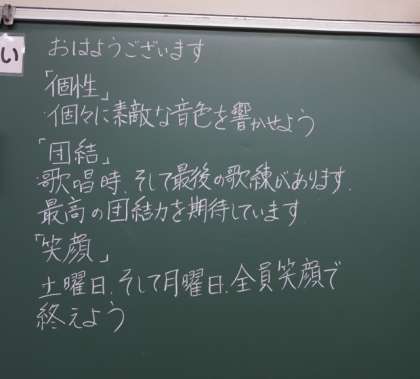 い
おはようございます
「個性」
個々に素敵な音色を響かせよう
「団結」
歌唱時、そして最後の歌練があります。
最高の団結力を期待しています
「笑顔」
土曜日、そして月曜日、全員笑顔で
終えよう